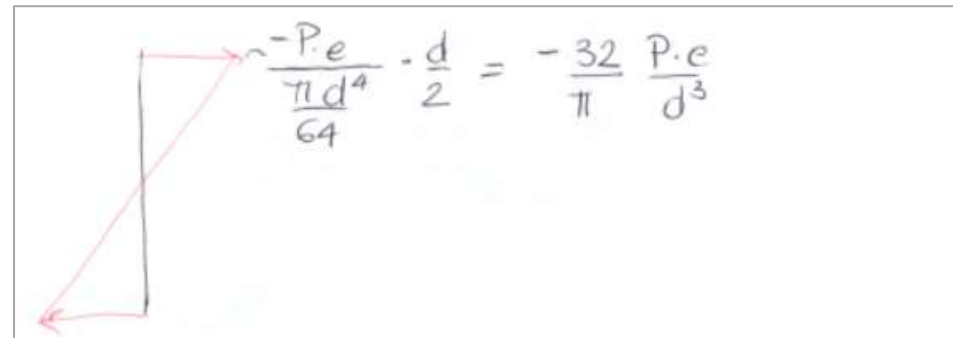 \frac{-P.e}{\frac{\pi d^4}{64}} \cdot \frac{d}{2} = \frac{-32}{\pi} \frac{P \cdot e}{d^3}